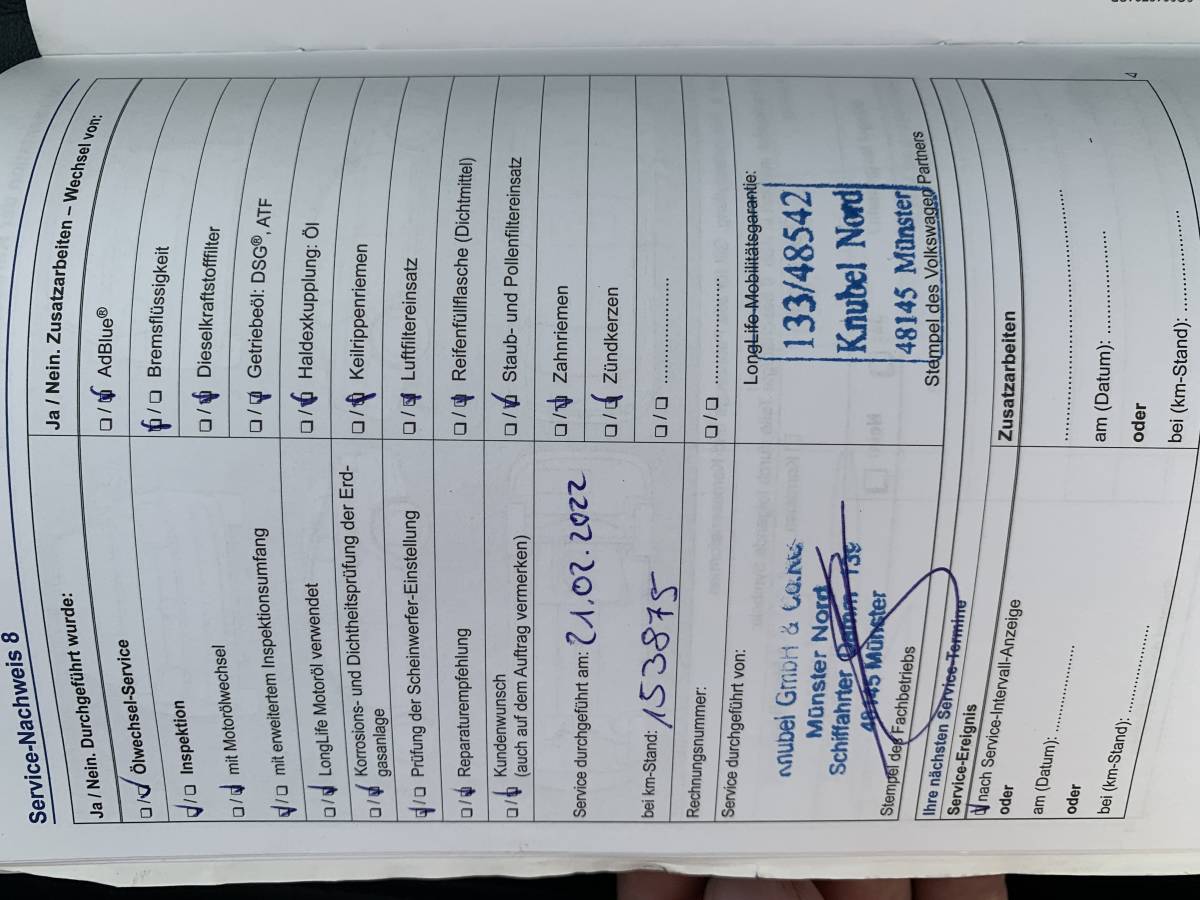 Service-Nachweis 8
Ja / Nein. Durchgeführt wurde:
☐/☑ Ölwechsel-Service
☑/☐ Inspektion
☐/☑ mit Motorölwechsel
☑/☐ mit erweitertem Inspektionsumfang
☐/☑ LongLife Motoröl verwendet
☐/☑ Korrosions- und Dichtheitsprüfung der Erd-
gasanlage
☑/☐ Prüfung der Scheinwerfer-Einstellung
☐/☑ Reparaturempfehlung
☐/☑ Kundenwunsch
(auch auf dem Auftrag vermerken)
Service durchgeführt am: 21.02.2022
bei km-Stand: 153875
Rechnungsnummer:
Service durchgeführt von:
Knubel GmbH & Co.KG
Münster Nord
Schiffahrter Damm 139
48145 Münster
Stempel des Fachbetriebs
Ja / Nein. Zusatzarbeiten – Wechsel von:
☐/☑ AdBlue®
☑/☐ Bremsflüssigkeit
☐/☑ Dieselkraftstofffilter
☐/☑ Getriebeöl: DSG®, ATF
☐/☑ Haldexkupplung: Öl
☐/☑ Keilrippenriemen
☐/☑ Luftfiltereinsatz
☐/☑ Reifenfüllflasche (Dichtmittel)
☐/☑ Staub- und Pollenfiltereinsatz
☐/☑ Zahnriemen
☐/☑ Zündkerzen
☐/☐ ....................
☐/☐ ....................
LongLife Mobilitätsgarantie:
133/48542
Knubel Nord
48145 Münster
Stempel des Volkswagen Partners
Ihre nächsten Service-Termine
Service-Ereignis
☑ nach Service-Intervall-Anzeige
oder
am (Datum): ....................
oder
bei (km-Stand): ....................
Zusatzarbeiten
........................................
am (Datum): ....................
oder
bei (km-Stand): ....................
4